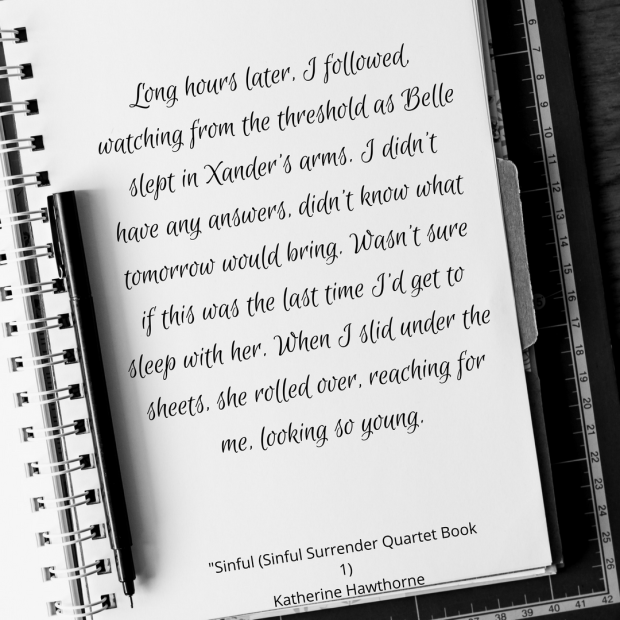 Long hours later, I followed,
watching from the threshold as Belle
slept in Xander's arms. I didn't
have any answers, didn't know what
tomorrow would bring. Wasn't sure
if this was the last time I'd get to
sleep with her. When I slid under the
sheets, she rolled over, reaching for
me, looking so young.
"Sinful (Sinful Surrender Quartet Book
1)
Katherine Hawthorne
6
7
8
9
10
11
12
13
14
15
16
17
18
19
20
21
22
23
24
25
26
42 41 40 39 38 37 36 35 34